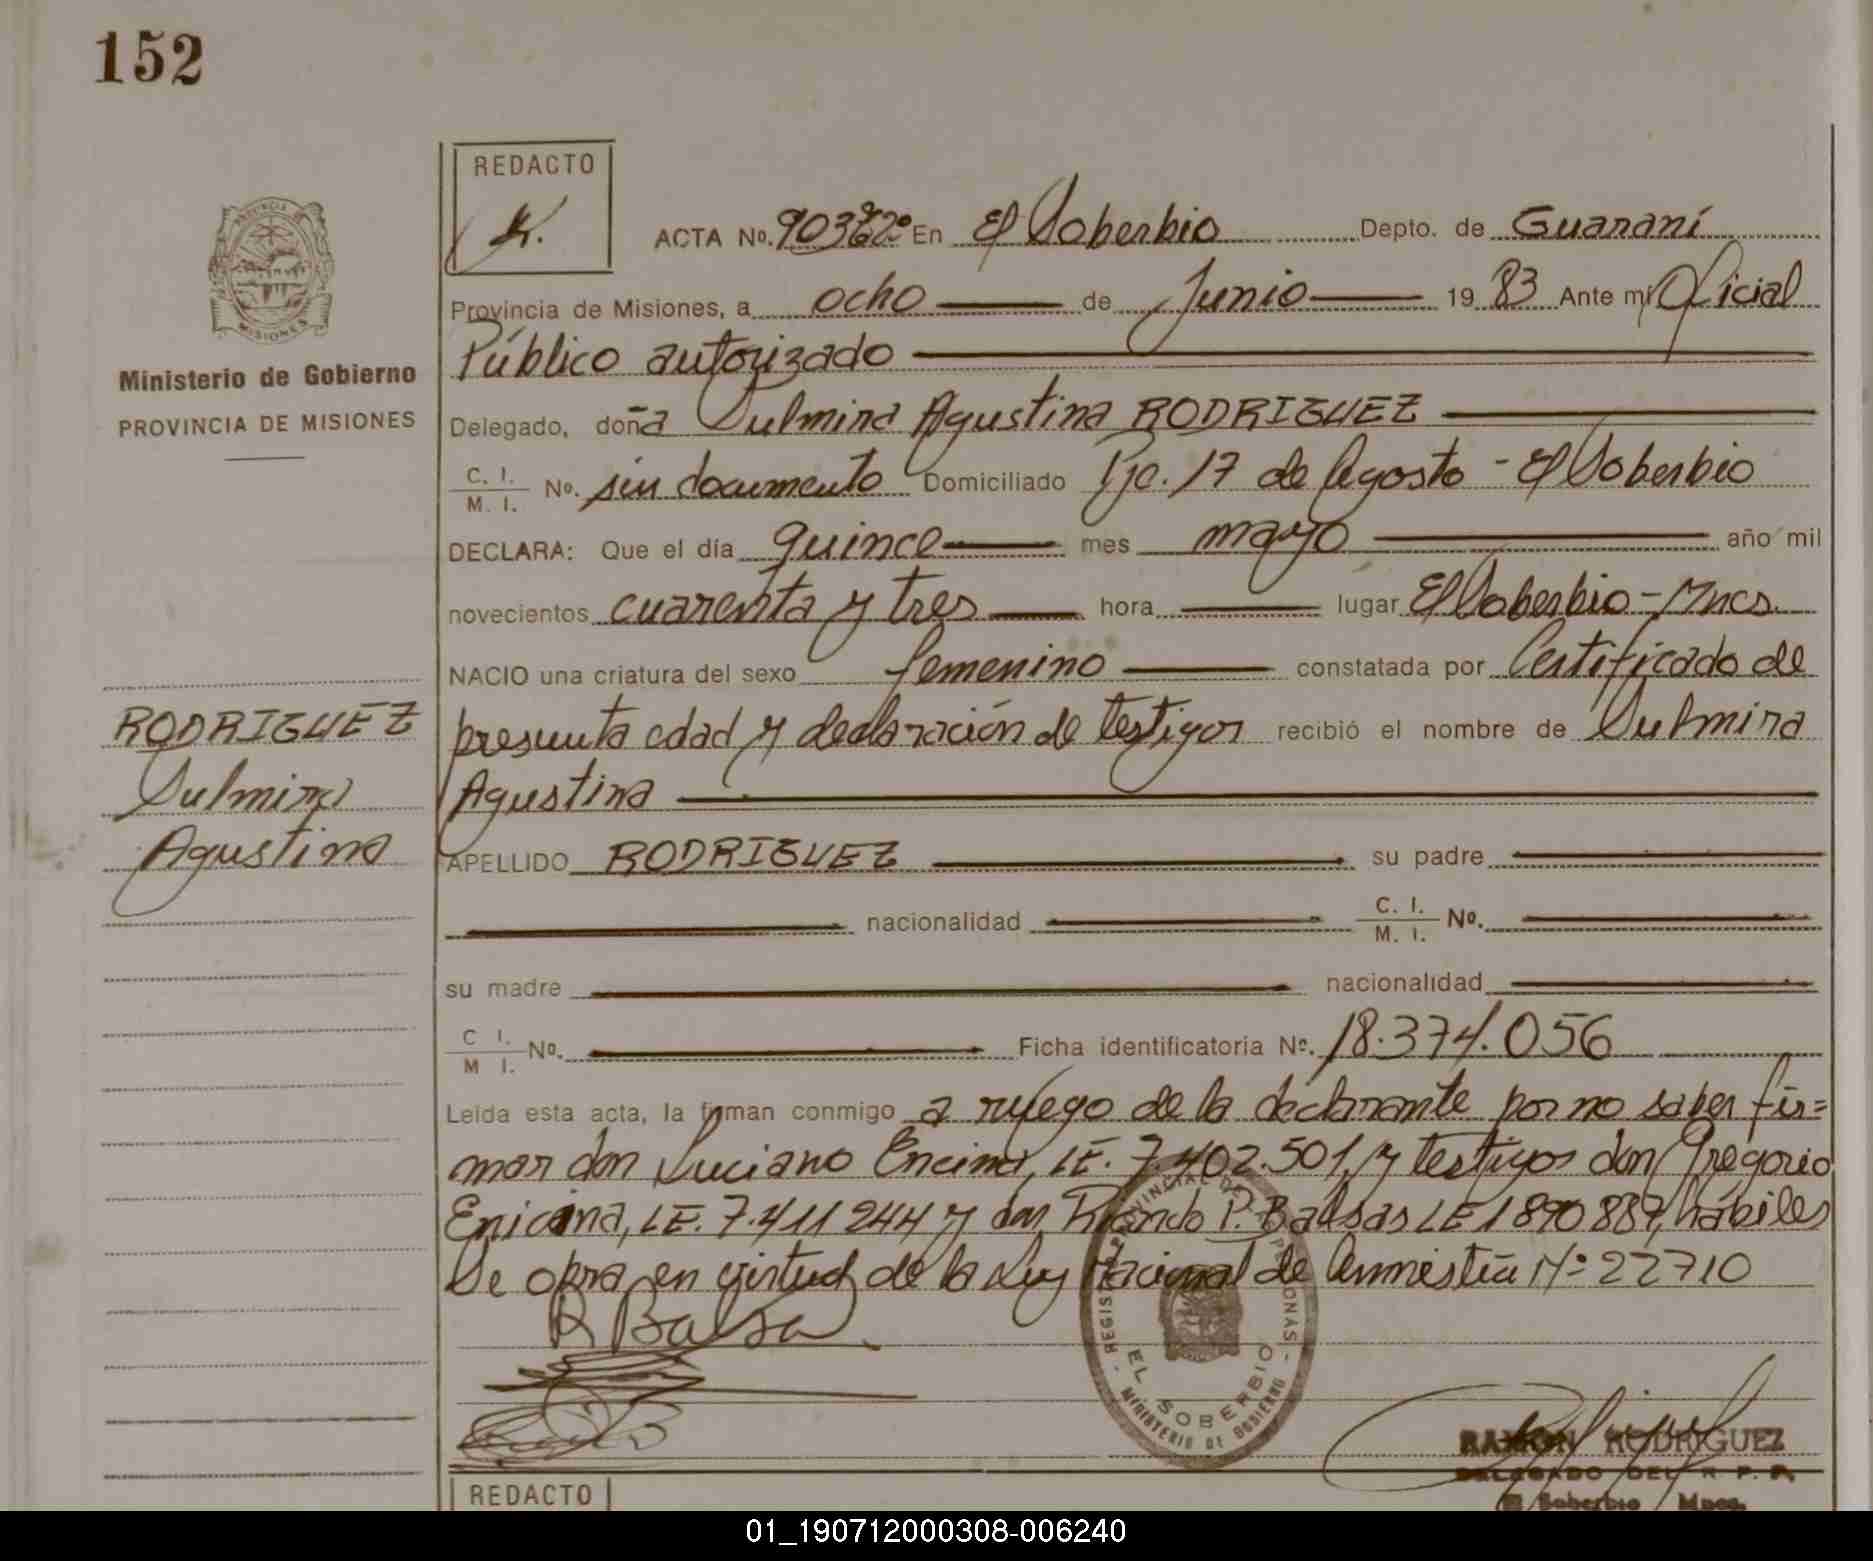 152
REDACTO
ACTA No. En El Soberbio Depto. de Guaraní
Provincia de Misiones, a ocho de Junio 1983 Ante mi Oficial
Público autorizado
Delegado, doña Sulmira Agustina RODRIGUEZ
C. I.
M. I. No. sin documento Domiciliado Pje. 17 de Agosto - El Soberbio
DECLARA: Que el día quince mes mayo año mil
novecientos cuarenta y tres hora lugar El Soberbio - Mnes.
NACIO una criatura del sexo femenino constatada por Certificado de
presunta edad y declaración de testigos recibió el nombre de Sulmira
Agustina
APELLIDO RODRIGUEZ su padre
nacionalidad C. I.
M. I. No.
su madre nacionalidad
C I.
M I. No. Ficha identificatoria No. 18.374.056
Leida esta acta, la firman conmigo a ruego de la declarante por no saber fir=
mar don Luciano Encina, LE. 7.402.501, y testigos don Gregorio
Enicina, LE. 7.411 244 y don P. Balsas LE 1 890 887, hábiles
Se obra en virtud de la Ley Nacional de Amnistía Nº 22710
R Balsa
Ministerio de Gobierno
PROVINCIA DE MISIONES
RODRIGUEZ
Sulmira
Agustina
PROVINCIA DE
MISIONES
REGISTRO PROVINCIAL DE PERSONAS
EL SOBERBIO
MINISTERIO DE GOBIERNO
RAMON RODRIGUEZ
DELEGADO DEL R. P. P.
El Soberbio Mnes.
REDACTO
01_190712000308-006240